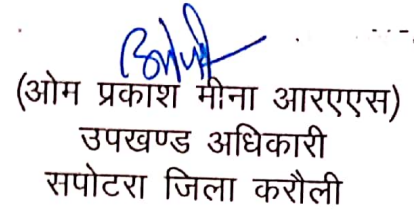 (ओम प्रकाश मीना आरएएस)
उपखण्ड अधिकारी
सपोटरा जिला करौली